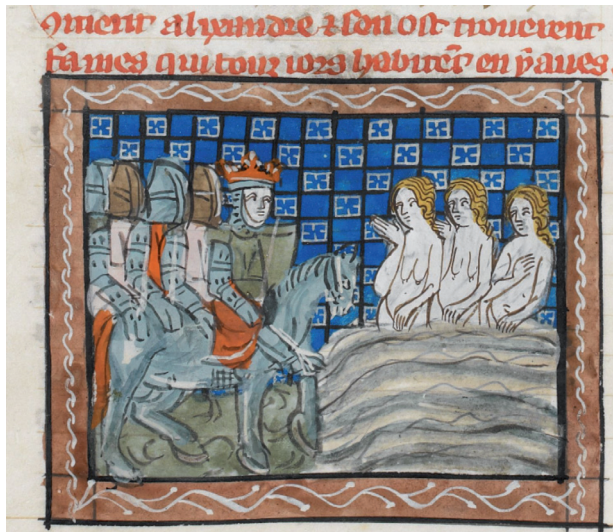 ꝯment alixandre ⁊ son ost trouerent
fames qui touz iors habitēt en yaues.